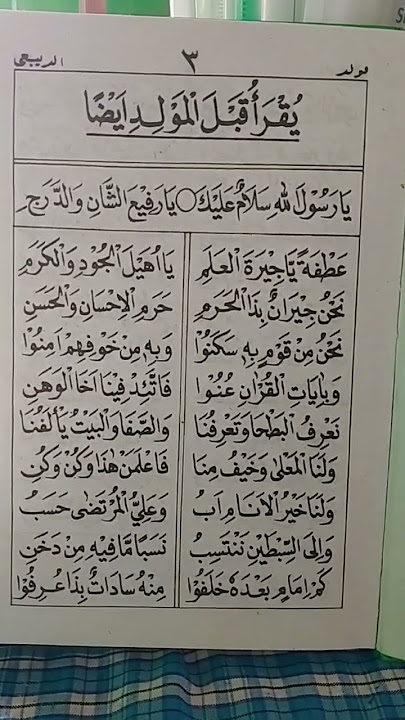 مولد ٣ الديبعي
يُقْرَأُ قَبْلَ الْمَوْلِدِ اَيْضًا
يَا رَسُوْلَ اللهِ سَلَامٌ عَلَيْكَ ○ يَا رَفِيْعَ الشَّانِ وَالدَّرَجِ
عَطْفَةً يَّاجِيْرَةَ الْعَلَمِ يَا اُهَيْلَ الْجُوْدِ وَالْكَرَمِ
نَحْنُ جِيْرَانٌ بِذَا الْحَرَمِ حَرَمِ الْاِحْسَانِ وَالْحَسَنِ
نَحْنُ مِنْ قَوْمٍ بِهٖ سَكَنُوْا وَبِهٖ مِنْ خَوْفِهِمْ اَمِنُوْا
وَبِاٰيَاتِ الْقُرْاٰنِ عُنُوْا فَاتَّئِدْ فِيْنَا اَخَا الْوَهَنِ
نَعْرِفُ الْبَطْحَا وَتَعْرِفُنَا وَالصَّفَا وَالْبَيْتُ يَأْلَفُنَا
وَلَنَا الْمَعْلٰى وَخَيْفُ مِنَا فَاعْلَمَنْ هٰذَا وَكُنْ وَكُنِ
وَلَنَا خَيْرُ الْاَنَامِ اَبُ وَعَلِيُّ الْمُرْتَضٰى حَسَبُ
وَاِلَى السِّبْطَيْنِ نَنْتَسِبُ نَسَبًا مَّا فِيْهِ مِنْ دَخَنِ
كَمْ اِمَامٍ بَعْدَهٗ خَلَفُوْا مِنْهُ سَادَاتٌ بِذَا عُرِفُوْا